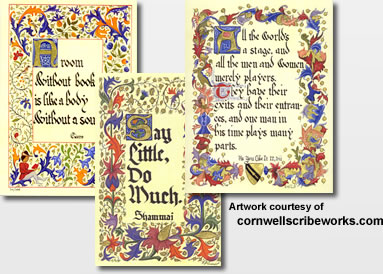 A room
Without book
is like a body
Without a sou
Cicero
Say
Little,
Do
Much.
Shammai
All the World's
a stage, and
all the men and Women
merely players.
They have their
exits and their entran-
ces, and one man in
his time plays many
parts.
As You Like It
Artwork courtesy of
cornwellscribeworks.com